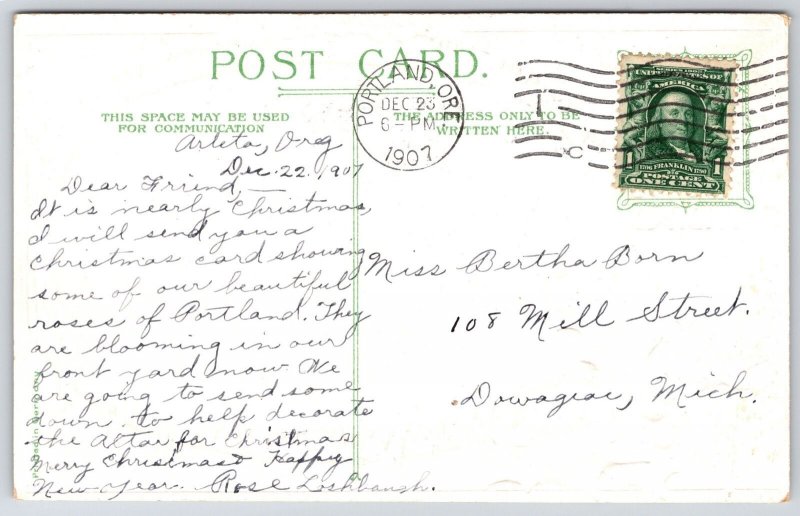 POST CARD.
THIS SPACE MAY BE USED
FOR COMMUNICATION
THE ADDRESS ONLY TO BE
WRITTEN HERE.
PORTLAND, ORE.
DEC 23
6-PM
1907
C
SERIES 1902
UNITED STATES OF
AMERICA
1 1
1706 FRANKLIN 1790
POSTAGE
ONE CENT
Arleta, Oreg
Dec. 22, 1907
Dear Friend, —
It is nearly Christmas,
I will send you a
Christmas card showing
some of our beautiful
roses of Portland. They
are blooming in our
front yard now. We
are going to send some
down to help decorate
the Altar for Christmas
Merry Christmas & Happy
New Year. Rose Loshbaugh.
Miss Bertha Born
108 Mill Street.
Dowagiac, Mich.
Printed in Germany